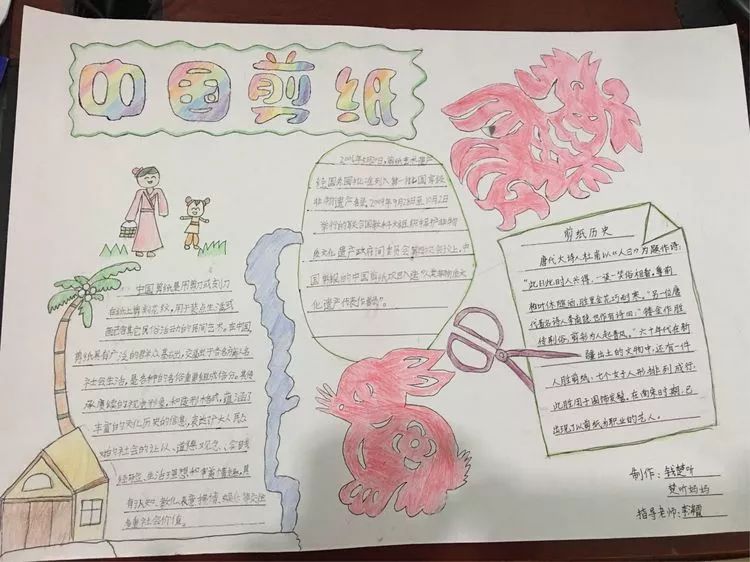 中国剪纸
2006年5月20日,剪纸艺术遗产
经国务院批准列入第一批国家级
非物质遗产名录.2009年9月28日至10月2日
举行的联合国教科文组织保护非物
质文化遗产政府间委员会第四次会议上,中
国申报的中国剪纸项目入选"人类非物质文
化遗产代表作名录"。
中国剪纸是用剪刀或刻刀
在纸上剪刻花纹,用于装点生活或
配合其它民俗活动的民间艺术。在中国
剪纸具有广泛的群众基础,交融于各族人民
社会生活,是各种民俗活动重要组成部分。其传
承赓续的视觉形象和造型格式,蕴涵了
丰富的文化历史的信息,表达广大人民
的社会认识、道德观念、
实践经验、生活理想和审美情趣,具
有认知、教化、表意、抒情、娱乐、交往
多重社会价值。
剪纸历史
唐代大诗人杜甫以《人日》为题作诗:
"此日此时人共得,一谈一笑俗相看,尊前
柏叶休随酒,胜里金花巧耐寒。"另一位唐
代著名诗人李商隐也作有诗曰:"镂金作胜
传荆俗,剪彩为人起晋风。"六十年代在新
疆出土的文物中,还有一件
人胜剪纸,七个女子人形排列成行
此胜用于围饰发髻。在南宋时期,已
出现了以剪纸为职业的艺人。
制作:钱楚昕
楚昕妈妈
指导老师:李霞